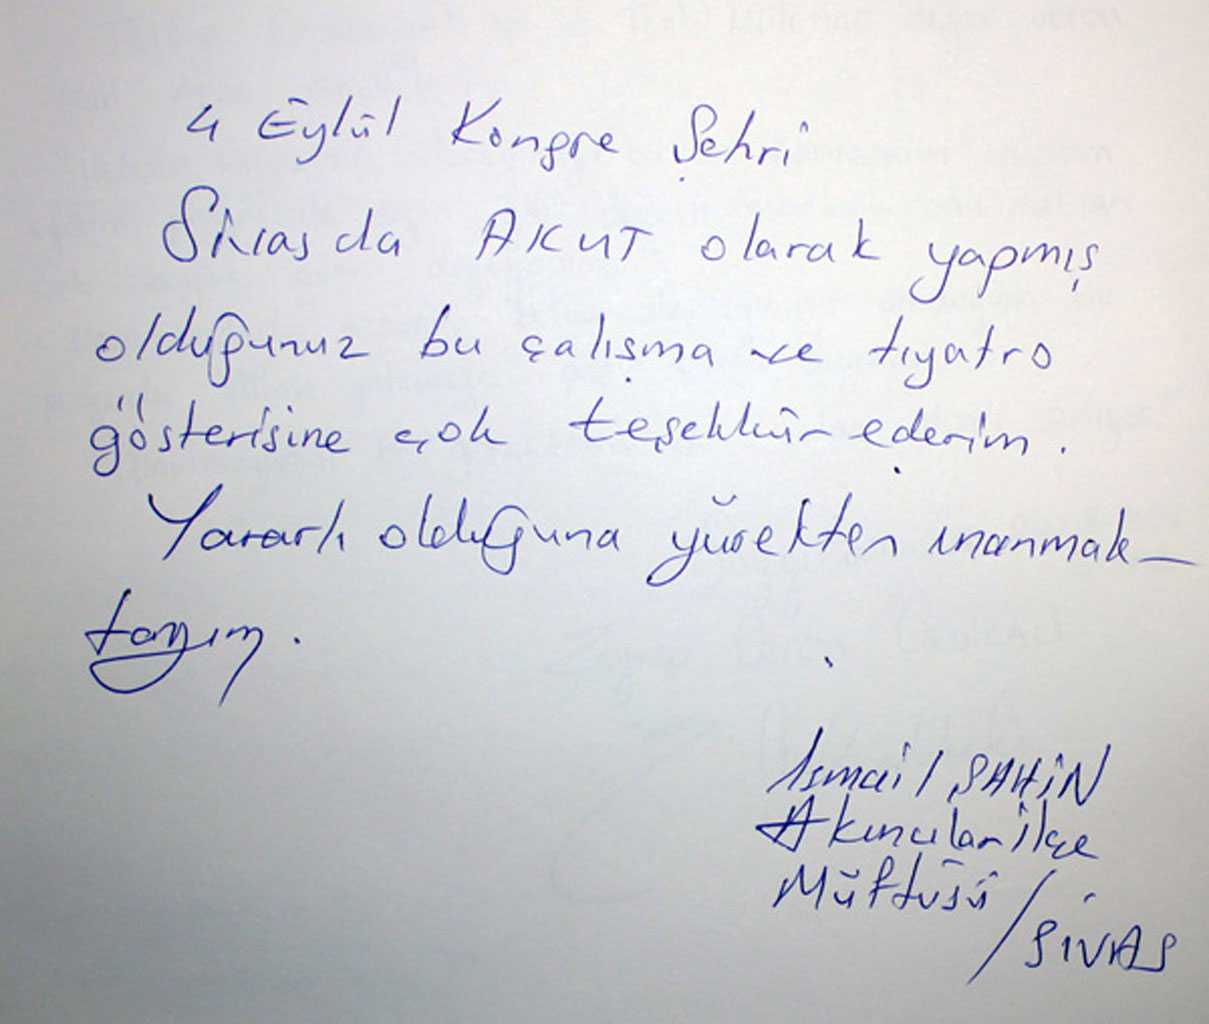 4 Eylül Kongre Şehri
Sivasda AKUT olarak yapmış
olduğunuz bu çalışma ve tiyatro
gösterisine çok teşekkür ederim.
Yararlı olduğuna yürekten inanmak-
tayım.
İsmail ŞAHİN
Akıncılar İlçe
Müftüsü
/SİVAS